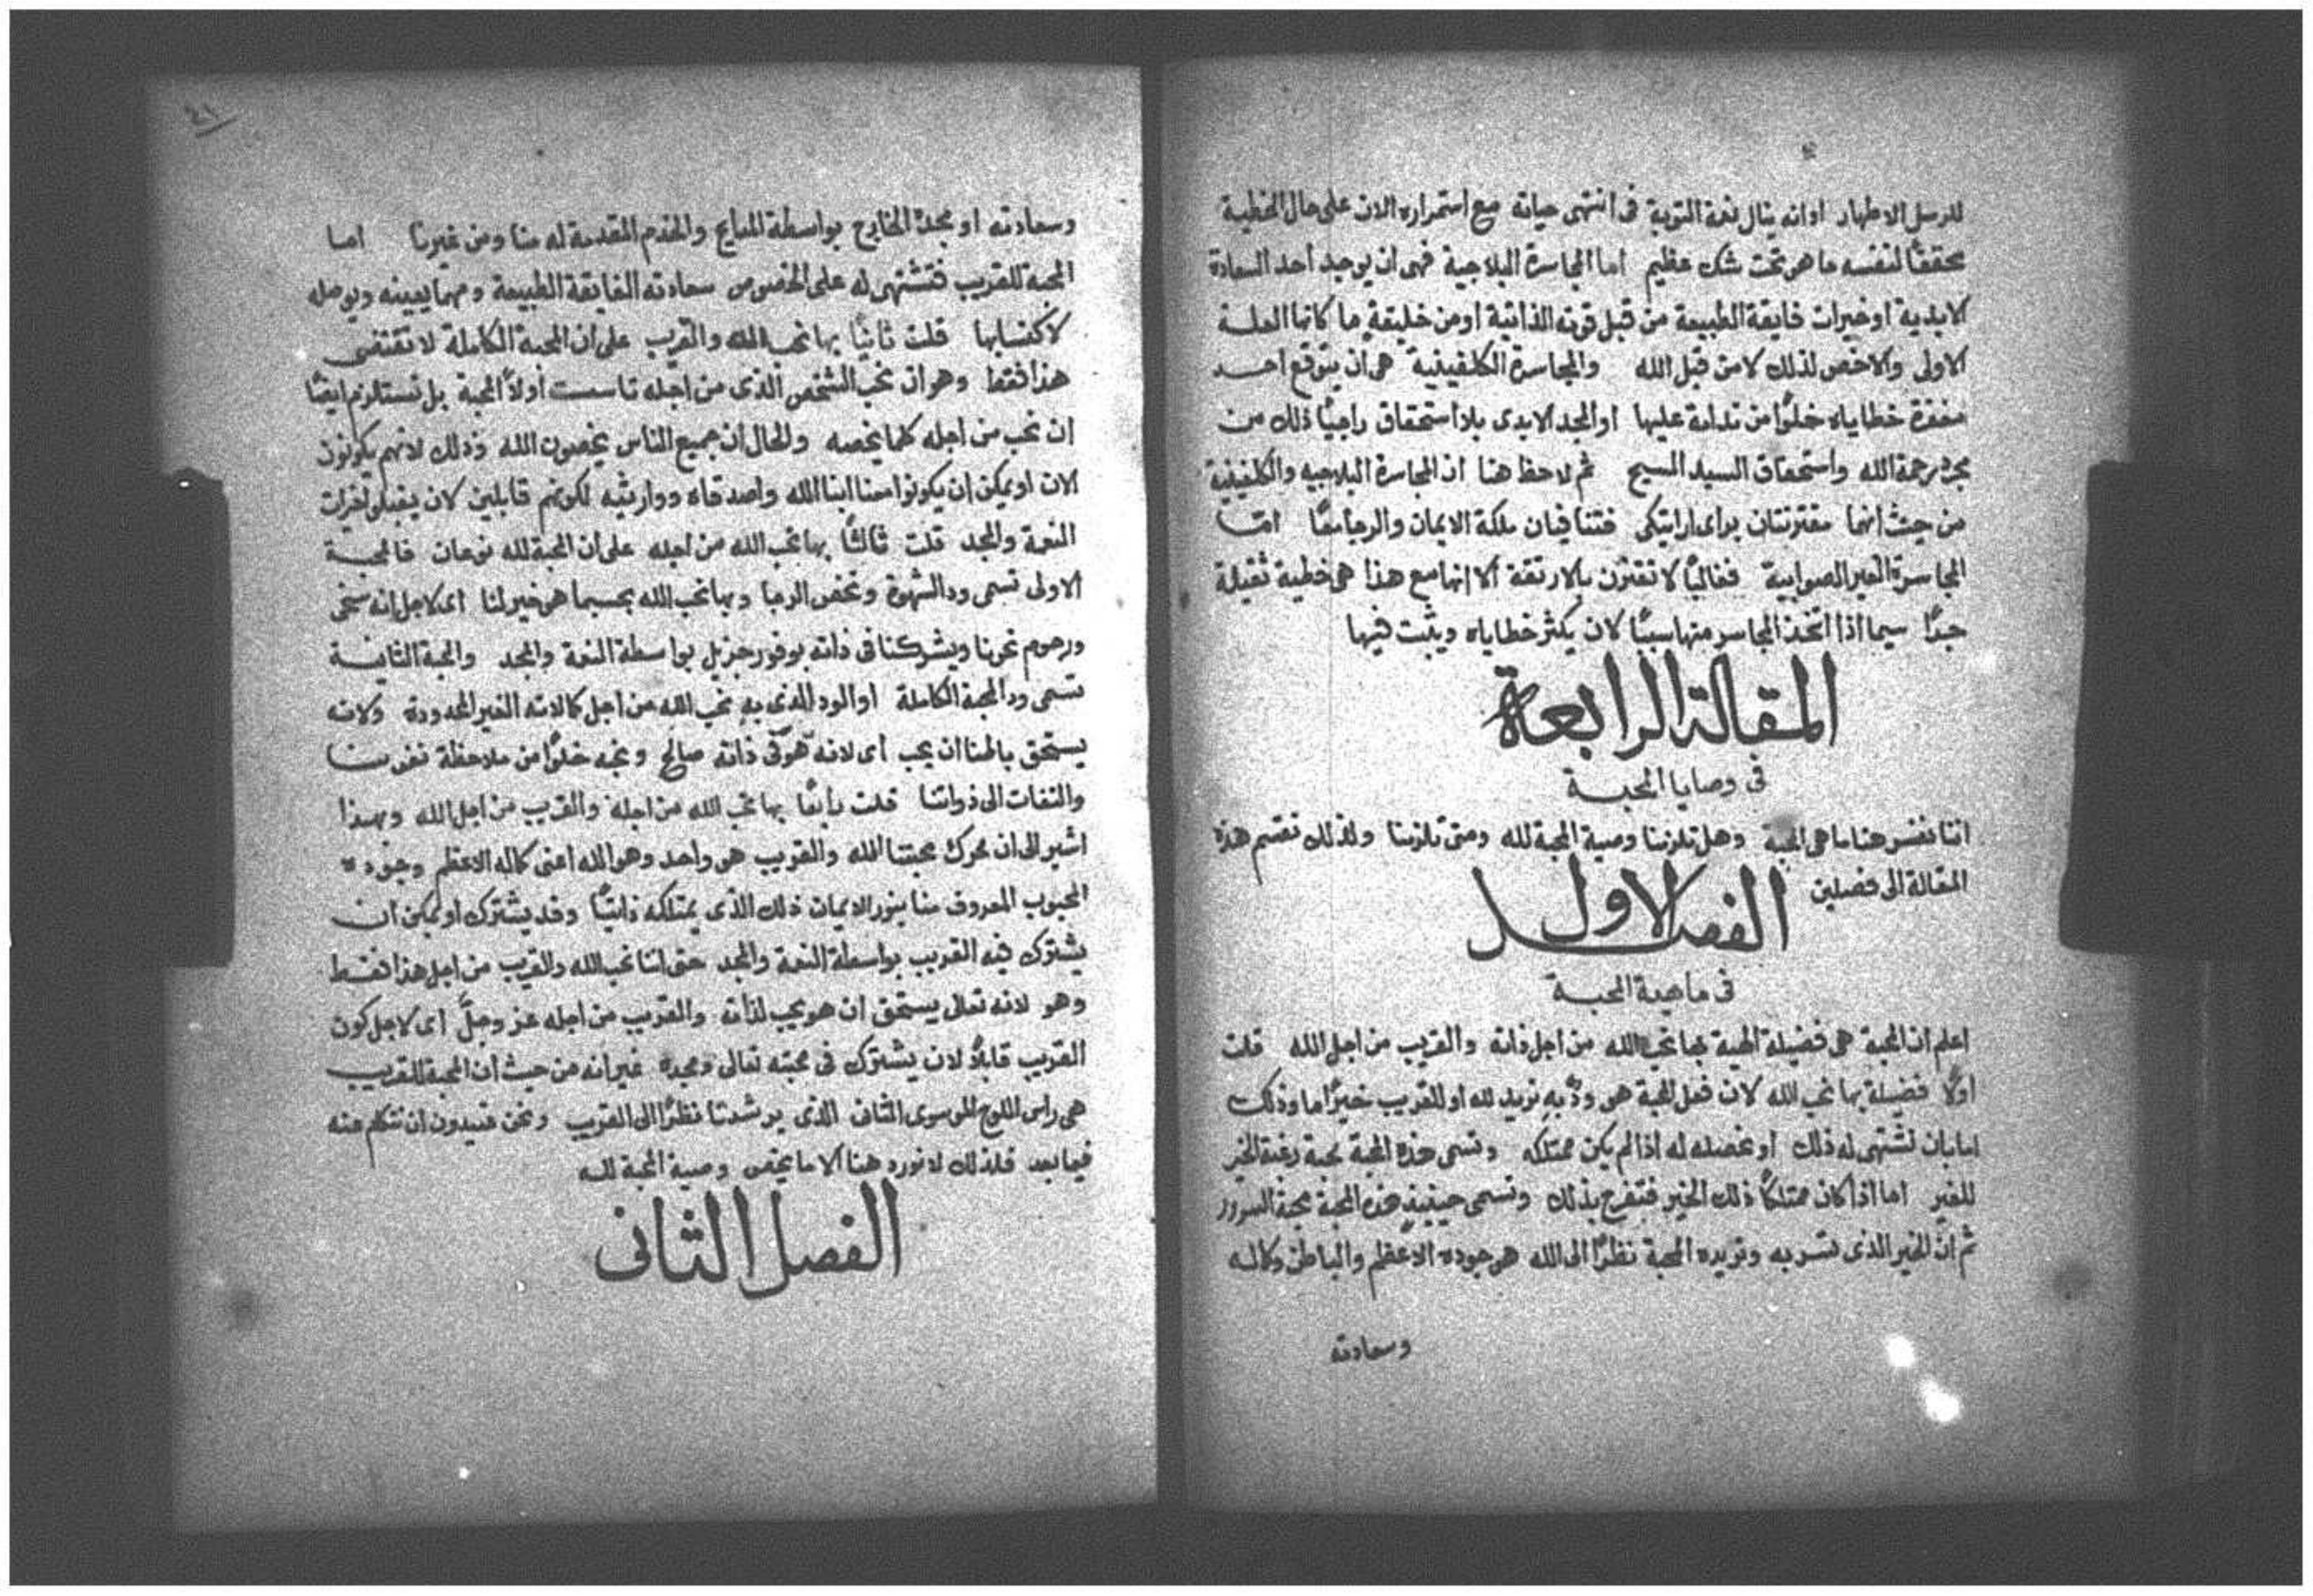 للرسل الاطهار او انه ينال نعمة التوبة فى انتهى حياته مع استمراره الان على حال الخطية
محققًا لنفسه ما هو تحت شك عظيم اما المجاسرة البلاجية فهى ان يوجد أحد السعادة
الابدية او خيرات فايقة الطبيعة من قبل قوته الذاتية او من خليقةٍ ما كانها العلـة
الاولى والاخص لذلك لا من قبل الله والمجاسرة الكلفينية هى ان يتوقع احـد
مغفرة خطاياه خلوًا من ندامة عليها او المجد الابدى بلا استحقاق راجيًا ذلك من
مجرد رحمة الله واستحقاق السيد المسيح ثم لاحظ هنا ان المجاسرة البلاجيه والكلفينية
من حيث انهما مقترنتان براى اراتيكى فتنافيان ملكة الايمان والرجا معًا امّـا
المجاسرة الغير الصوابية فغالبًا لا تقترن بالارتقة الا انها مع هذا هى خطية ثقيلة
جدًا سيما اذا اتخذ المجاسر منها سببًا لان يكثر خطاياه ويثبت فيها
المقالة الرابعة
فى وصايا المحبـة
اننا نفسر هنا ما هى المحبة وهل تلزمنا وصية المحبة لله ومتى تلزمنا ولذلك نقسم هذه
المقالة الى فصلين
الفصل الاول
فى ماهية المحبـة
اعلم ان المحبة هى فضيلة الهية بها نحب الله من اجل ذاته والقريب من اجل الله قلت
اولًا فضيلة بها نحب الله لان فعل المحبة هى ودٌ به نريد لله او للقريب خيرًا ما وذلك
اما بان نشتهى له ذلك او نحصله له اذا لم يكن ممتلكه وتسمى هذه المحبة محبة رغبة الخير
للغير اما اذا كان ممتلكًا ذلك الخير فنفرح بذلك وتسمى حينيذٍ هذه المحبة محبة السرور
ثم انّ الخير الذى نسر به ونريده المحبة نظرًا الى الله هو جوده الاعظم والباطن وكماله
وسعادته
٢١
وسعادته او مجدهُ الخارج بواسطة المدايح والخدم المقدمة له منا ومن غيرنا اما
المحبة للقريب فتشتهى له على الخصوص سعادته الفايقة الطبيعة ومهما يعينه ويوصله
لاكتسابها قلت ثانيًا بها نحب الله والقريب على ان المحبة الكاملة لا تقتضى
هذا فقط وهو ان نحب الشخص الذى من اجله تاسست أولًا المحبة بل تستلزم ايضًا
ان نحب من اجله كلما يخصه والحال ان جميع الناس يخصون الله وذلك لانهم يكونون
الان او يمكن ان يكونوا معنا ابنا الله واصدقاه ووارثيه لكونهم قابلين لان يقبلوا خيرات
النعمة والمجد قلت ثالثًا بها نحب الله من اجله على ان المحبة لله نوعان فالمحبـة
الاولى تسمى ود الشهوة وتخص الرجا وبها نحب الله بحسبما هو خير لنا اى لاجل انه سخى
ورحوم نحونا ويشركنا فى ذاته بوفور جزيل بواسطة النعمة والمجد والمحبة الثانيـة
تسمى ود المحبة الكاملة او الود الذى بهِ نحب الله من اجل كمالاته الغير المحدودة ولانه
يستحق بالهنا ان يحب اى لانه هو فى ذاته صالح ونحبه خلوًا من ملاحظة نفوسنـا
والتفات الى ذواتنا قلت رابعًا بها نحب الله من اجله والقريب من اجل الله وبهـذا
اشير الى ان محرك محبتنا الله والقريب هو واحد وهو الله اعنى كماله الاعظم وجوده
المحبوب المعروف منا بنور الايمان ذلك الذى يمتلكه ذاتيًا وقد يشترك او يمكن ان
يشترك فيه القريب بواسطة النعمة والمجد حتى اننا نحب الله والقريب من اجل هذا فقـط
وهو لانه تعالى يستحق ان هو يحب لذاته والقريب من اجله عز وجلَّ اى لاجل كون
القريب قابلًا لان يشترك فى محبته تعالى ومجده غير انه من حيث ان المحبة للقريب
هى راس اللوح الموسوى الثانى الذى يرشدنا نظرًا الى القريب ونحن عتيدون ان نتكلم عنه
فيما بعد فلذلك لا نورد هنا الا ما يخص وصية المحبة لله
الفصل الثانى